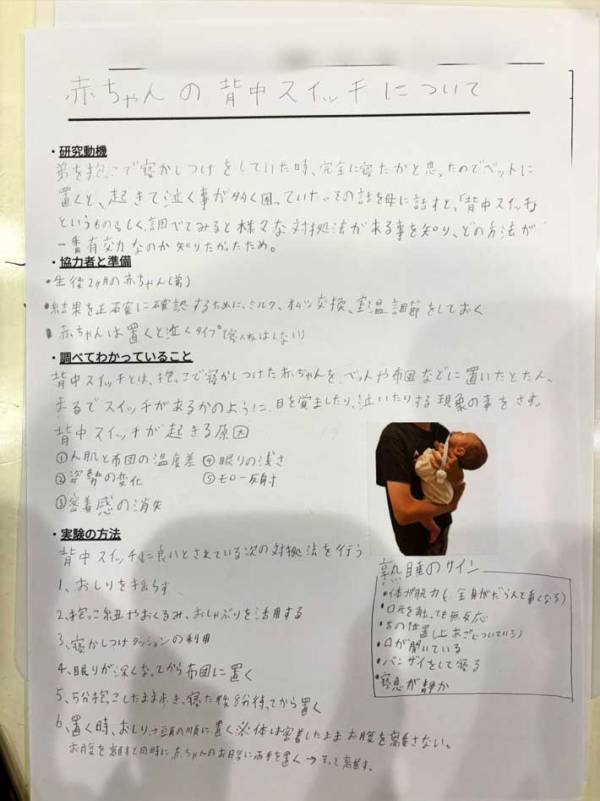 赤ちゃんの背中スイッチについて
・研究動機
弟を抱っこで寝かしつけをしていた時、完全に寝たかと思ったのでベットに
置くと、起きて泣く事が多く困っていた。その話を母に話すと、「背中スイッチ」
というものらしく調べてみると様々な対処法がある事を知り、どの方法が
一番有効なのか知りたかったため。
・協力者と準備
・生後2ヶ月の赤ちゃん(弟)
・結果を正確に確認するために、ミルク、オムツ交換、室温調節をしておく
・赤ちゃんは置くと泣くタイプ
・調べてわかっていること
背中スイッチとは、抱っこで寝かしつけた赤ちゃんを、ベットや布団などに置いたとたん、
まるでスイッチがあるかのように、目を覚ましたり、泣いたりする現象の事をさす。
背中スイッチが起きる原因
①人肌と布団の温度差 ④眠りの浅さ
②姿勢の変化 ⑤モロー反射
③密着感の消失
・実験の方法
背中スイッチに良いとされている次の対処法を行う
1、おしりを揺らす
2、抱っこ紐やおくるみ、おしゃぶりを活用する
3、寝かしつけクッションの利用
4、眠りが深くなってから布団に置く
5、5分抱っこしたまま歩き、寝た後8分待ってから置く
6、置く時、おしり→頭の順に置く※体は密着したままお腹を離さない。
お腹を離すと同時に赤ちゃんのお腹に両手を置く→そっと離す。
熟睡のサイン
・体が脱力(全身がだらんて重くなる)
・口元を触っても無反応
・舌の位置(上あごについている)
・口が開いている
・バンザイをして寝る
・寝息が静か